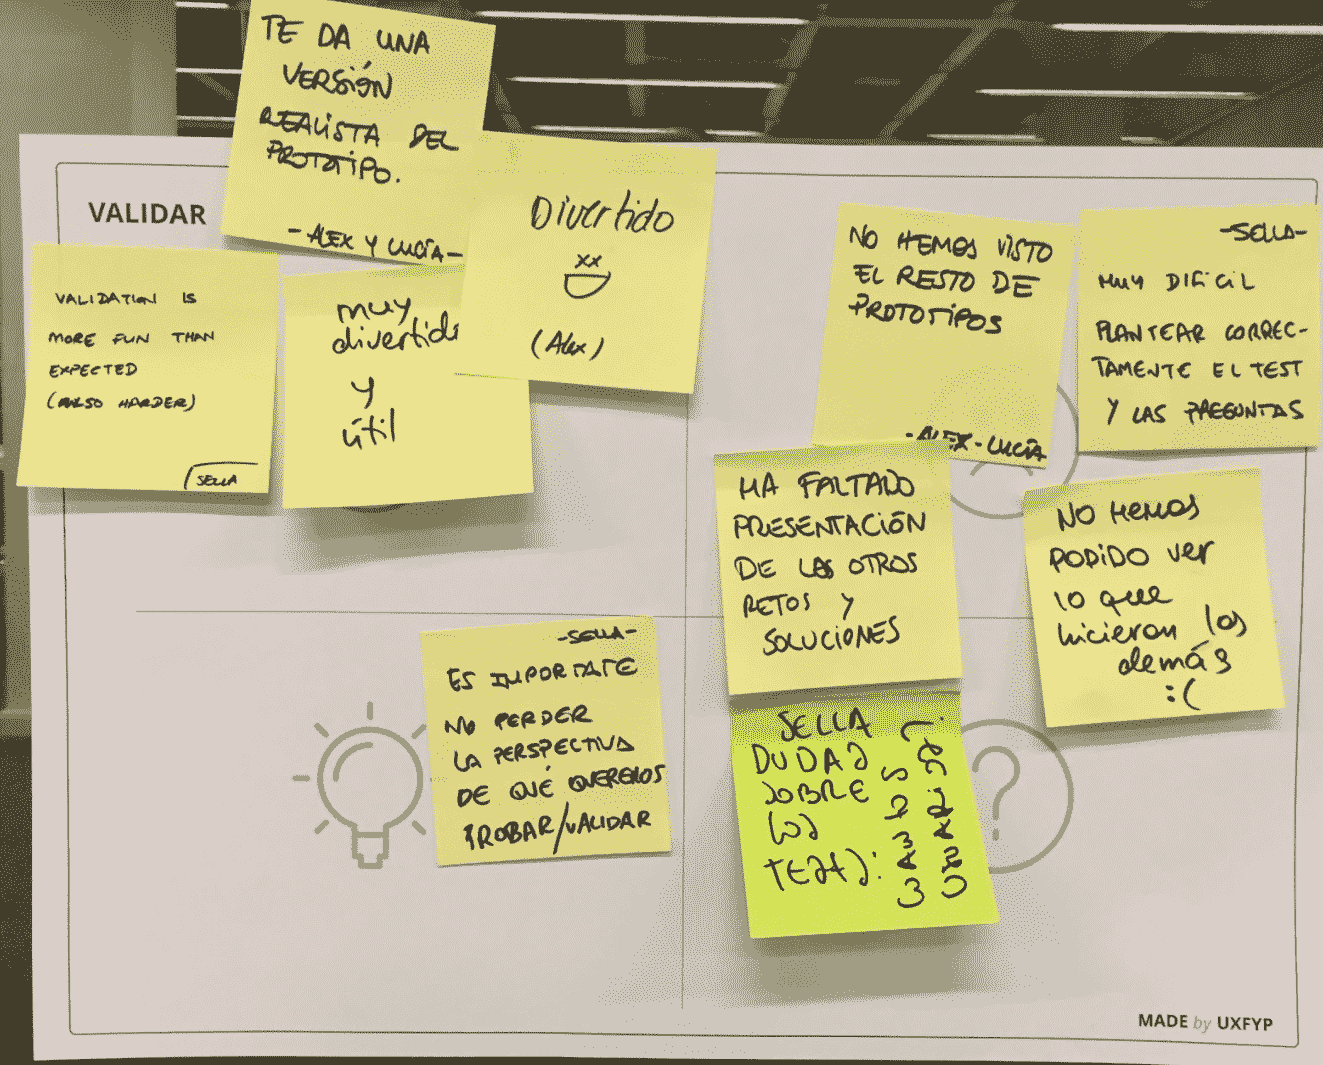 TE DA UNA
VERSIÓN
REALISTA DEL
PROTOTIPO.
-ALEX Y LUCÍA-
VALIDAR
VALIDATION IS
MORE FUN THAN
EXPECTED
(ALSO HARDER)
SELLA
muy
divertido
y
útil
Divertido
(Alex)
NO HEMOS VISTO
EL RESTO DE
PROTOTIPOS
-ALEX-LUCÍA
-SELLA-
MUY DIFÍCIL
PLANTEAR CORREC-
TAMENTE EL TEST
Y LAS PREGUNTAS
HA FALTADO
PRESENTACIÓN
DE LAS OTROS
RETOS Y
SOLUCIONES
NO HEMOS
PODIDO ver
lo que
hicieron los
demás
:(
-SELLA-
ES IMPORTATE
NO PERDER
LA PERSPECTIVA
DE QUÉ QUEREMOS
PROBAR/VALIDAR
SELLA
DUDAS
SOBRE
LOS
TESTS:
CUANTOS
?
MADE by UXFYP